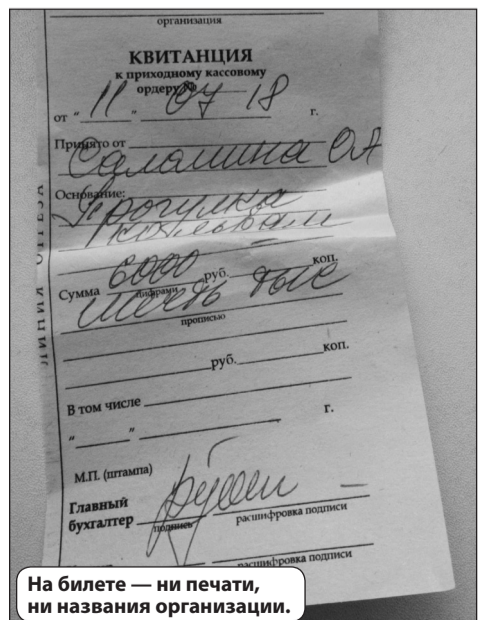 организация
КВИТАНЦИЯ
к приходному кассовому
ордеру №
от " 11 " 07 18 г.
Принято от
Саламшина ОА
Основание:
Прогулка
Сумма 6000 руб. — коп.
цифрами
шесть тыс
прописью
руб. коп.
В том числе
" " г.
М.П. (штампа)
Главный
бухгалтер
подпись расшифровка подписи
расшифровка подписи
ЛИНИЯ ОТРЕЗА
На билете — ни печати,
ни названия организации.